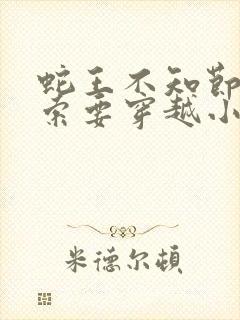 蛇王不知节
索要穿越小
米德尔顿